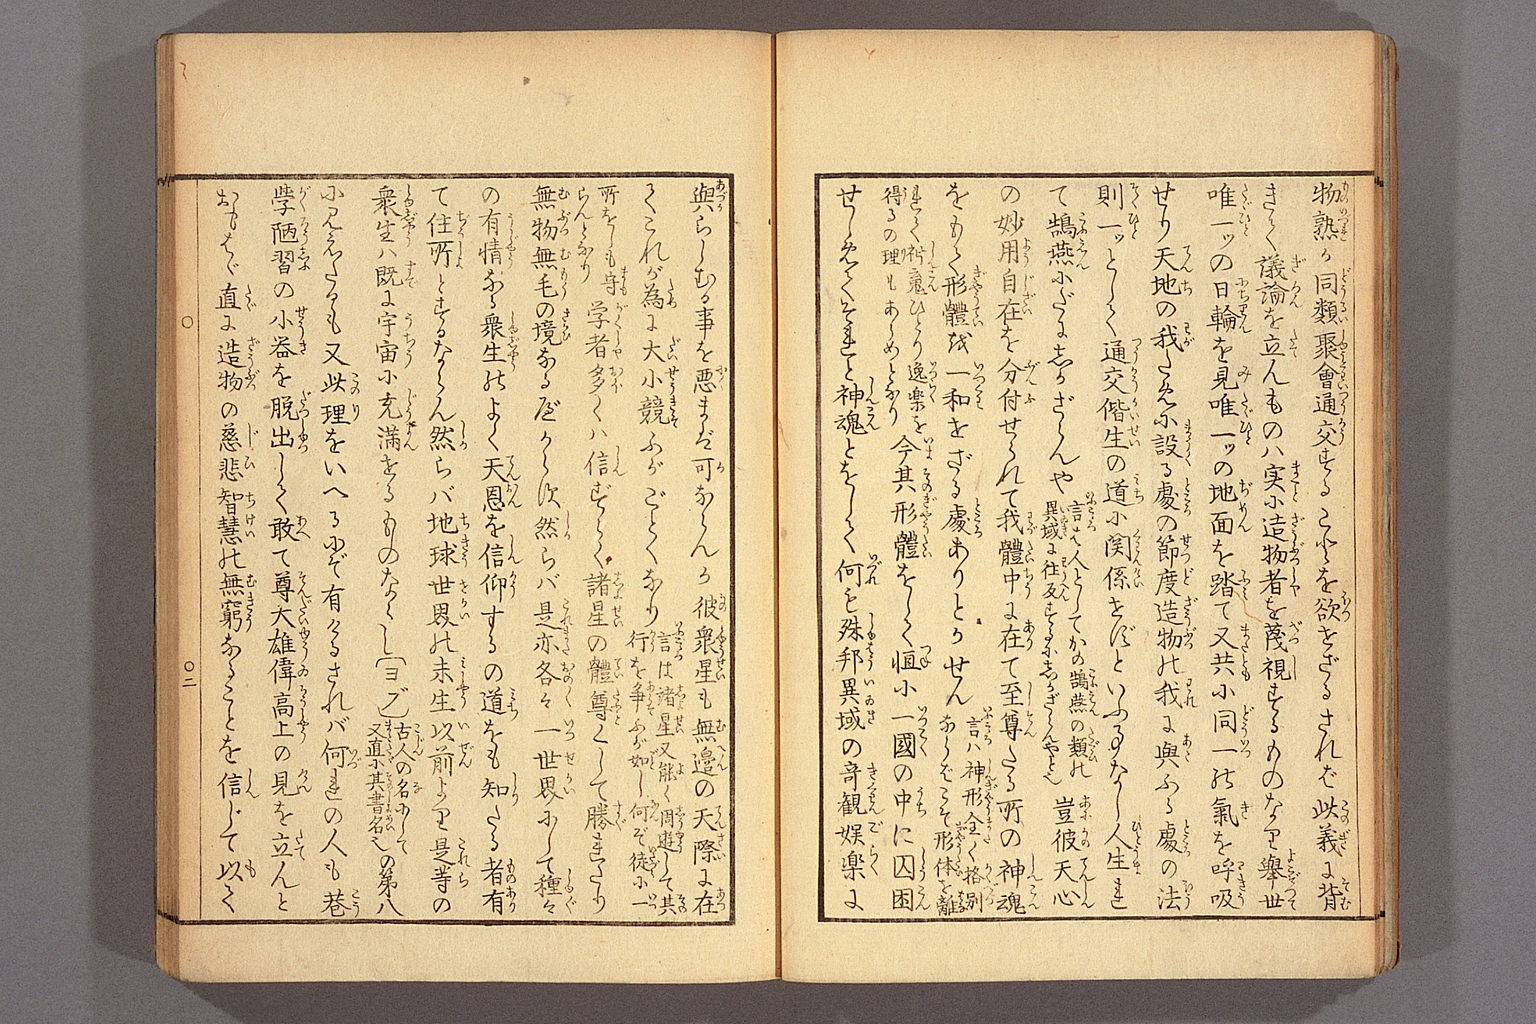 物熟か同類聚會通交するこをを欲せざるされば此義に背
きて議論を立んものハ実に造物者を蔑視するものなり舉世
唯一ッの日輪を見唯一ッの地面を踏て又共に同一の氣を呼吸
せり天地の我ために設る處の節度造物の我に與ふる處の法
則一ッとして通交偕生の道に関係せずといふ事なし人生れ
て鵠燕にだにしかざらんや言は人としてかの鵠燕の類の異域に往及するにしかざらんやと也豈彼天心
の妙用自在を分付せられて我體中に在て至尊たる所の神魂
をもて形體に一和せざる處ありとかせん言ハ神形全く格別ならばこそ形体を離
れて神魂ひとり逸楽を得るの理もあらめとなり今其形體をして恒に一國の中に囚困
せしめてそれと神魂とをして何ぞ殊邦異域の奇観娯楽に
與らしむる事を悪まば可ならんか彼衆星も無邉の天際に在
てこれが為に大小競ふがごとくなり言は諸星又能く周遊して其行を争ふが如し何ぞ徒に一
所をしも守らんとなり学者多くハ信ずらく諸星の體尊くして勝れたり
無物無毛の境なるべからず然らバ是亦各々一世界にして種々
の有情なる衆生のよく天恩を信仰するの道をも知たる者有
て住所とするならん然らバ地球世界の未生以前より是等の
衆生ハ既に宇宙に充満せるものなるべし〔ヨブ〕古人の名にして又直に其書名也の第八
に見えたるも又此理をいへるにぞ有けるされバ何れの人も巷
學陋習の小谷を脱出して敢て尊大雄偉高上の見を立んと
おもはゞ直に造物の慈悲智慧の無窮なることを信じて以て
〇
〇二